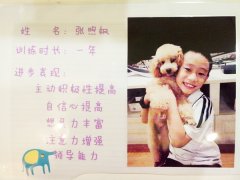 姓 名: 张照奴
训练时长: 一年
进步表现:
主动积极性提高
自信心提高
想象力丰富
注意力增强
辅导能力